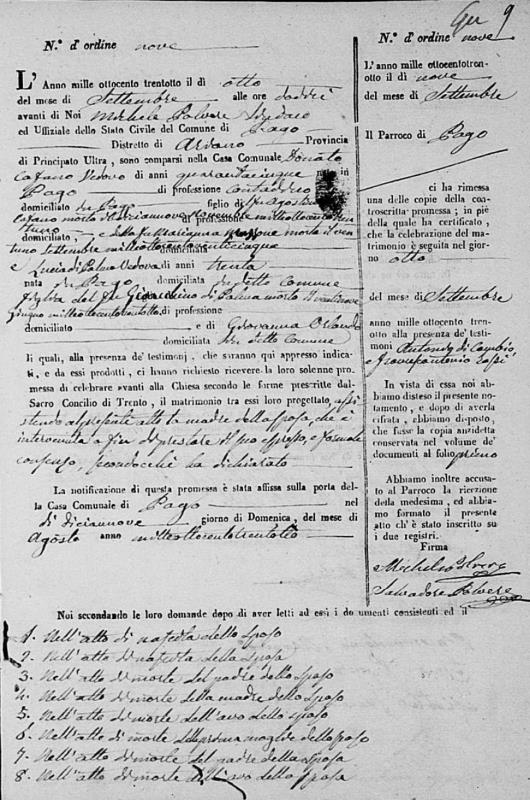 Gen 9
N.º d'ordine nove
L'Anno mille ottocento trentotto il dì otto
del mese di Settembre alle ore dodici
avanti di Noi Michele Palvere Sindaco
ed Uffiziale dello Stato Civile del Comune di Pago
Distretto di Avellino Provincia
di Principato Ultra, sono comparsi nella Casa Comunale Donato
Cafano Vedovo di anni quarantacinque nato in
Pago di professione Contadino
domiciliato in Pago figlio di fu
Cafano morto diciannove Novembre milleottocento
domiciliato, e della fu morta il ven
tuno settembre milleottocentoventicinque
e Lucia di Palma Vedova di anni trenta
nata in Pago in detto Comune
figlia del fu Gioacchino di Palma morto
Giugno milleottocentoventotto, di professione
domiciliato e di Giovanna Orlando
domiciliata in detto Comune
Ii quali, alla presenza de' testimonj, che saranno qui appresso indica-
ti, e da essi prodotti, ci hanno richiesto ricevere la loro solenne pro-
messa di celebrare avanti alla Chiesa secondo le forme prescritte dal
Sacro Concilio di Trento, il matrimonio tra essi loro progettato, assi
stendo al presente atto la madre della sposa, che è
intervenuta a fin di prestare il suo espresso, e formale
consenso, secondocchè ha dichiarato
La notificazione di questa promessa è stata affissa sulla porta del-
la Casa Comunale di Pago nel
dì diciannove giorno di Domenica, del mese di
Agosto anno milleottocentotrentotto
Noi secondando le loro domande dopo di aver letti ad essi i documenti consistenti ed il
1. Nell'atto di nascita dello sposo
2. Nell'atto di nascita della sposa
3. Nell'atto di morte del padre dello sposo
4. Nell'atto di morte della madre dello sposo
5. Nell'atto di morte dell'avo dello sposo
6. Nell'atto di morte della prima moglie dello sposo
7. Nell'atto di morte del padre della sposa
8. Nell'atto di morte dell'avo della sposa
N.º d'ordine nove
L'anno mille ottocentotren-
totto il dì nove
del mese di Settembre
Il Parroco di Pago
ci ha rimessa
una delle copie della con-
troscritta promessa; in piè
della quale ha certificato,
che la celebrazione del ma-
trimonio è seguita nel gior-
no otto
del mese di Settembre
anno mille ottocento tren-
totto alla presenza de' testi-
monj Antonio di Cambio
e Francesantonio
In vista di essa noi ab-
biamo disteso il presente no-
tamento, e dopo di averla
cifrata, abbiamo disposto,
che fusse la copia anzidetta
conservata nel volume de'
documenti al foglio primo
Abbiamo inoltre accusa-
to al Parroco la ricezione
della medesima, ed abbia-
mo formato il presente
atto ch'è stato inscritto su
i due registri.
Firma
Michele Palvere
Salvadore Palvere